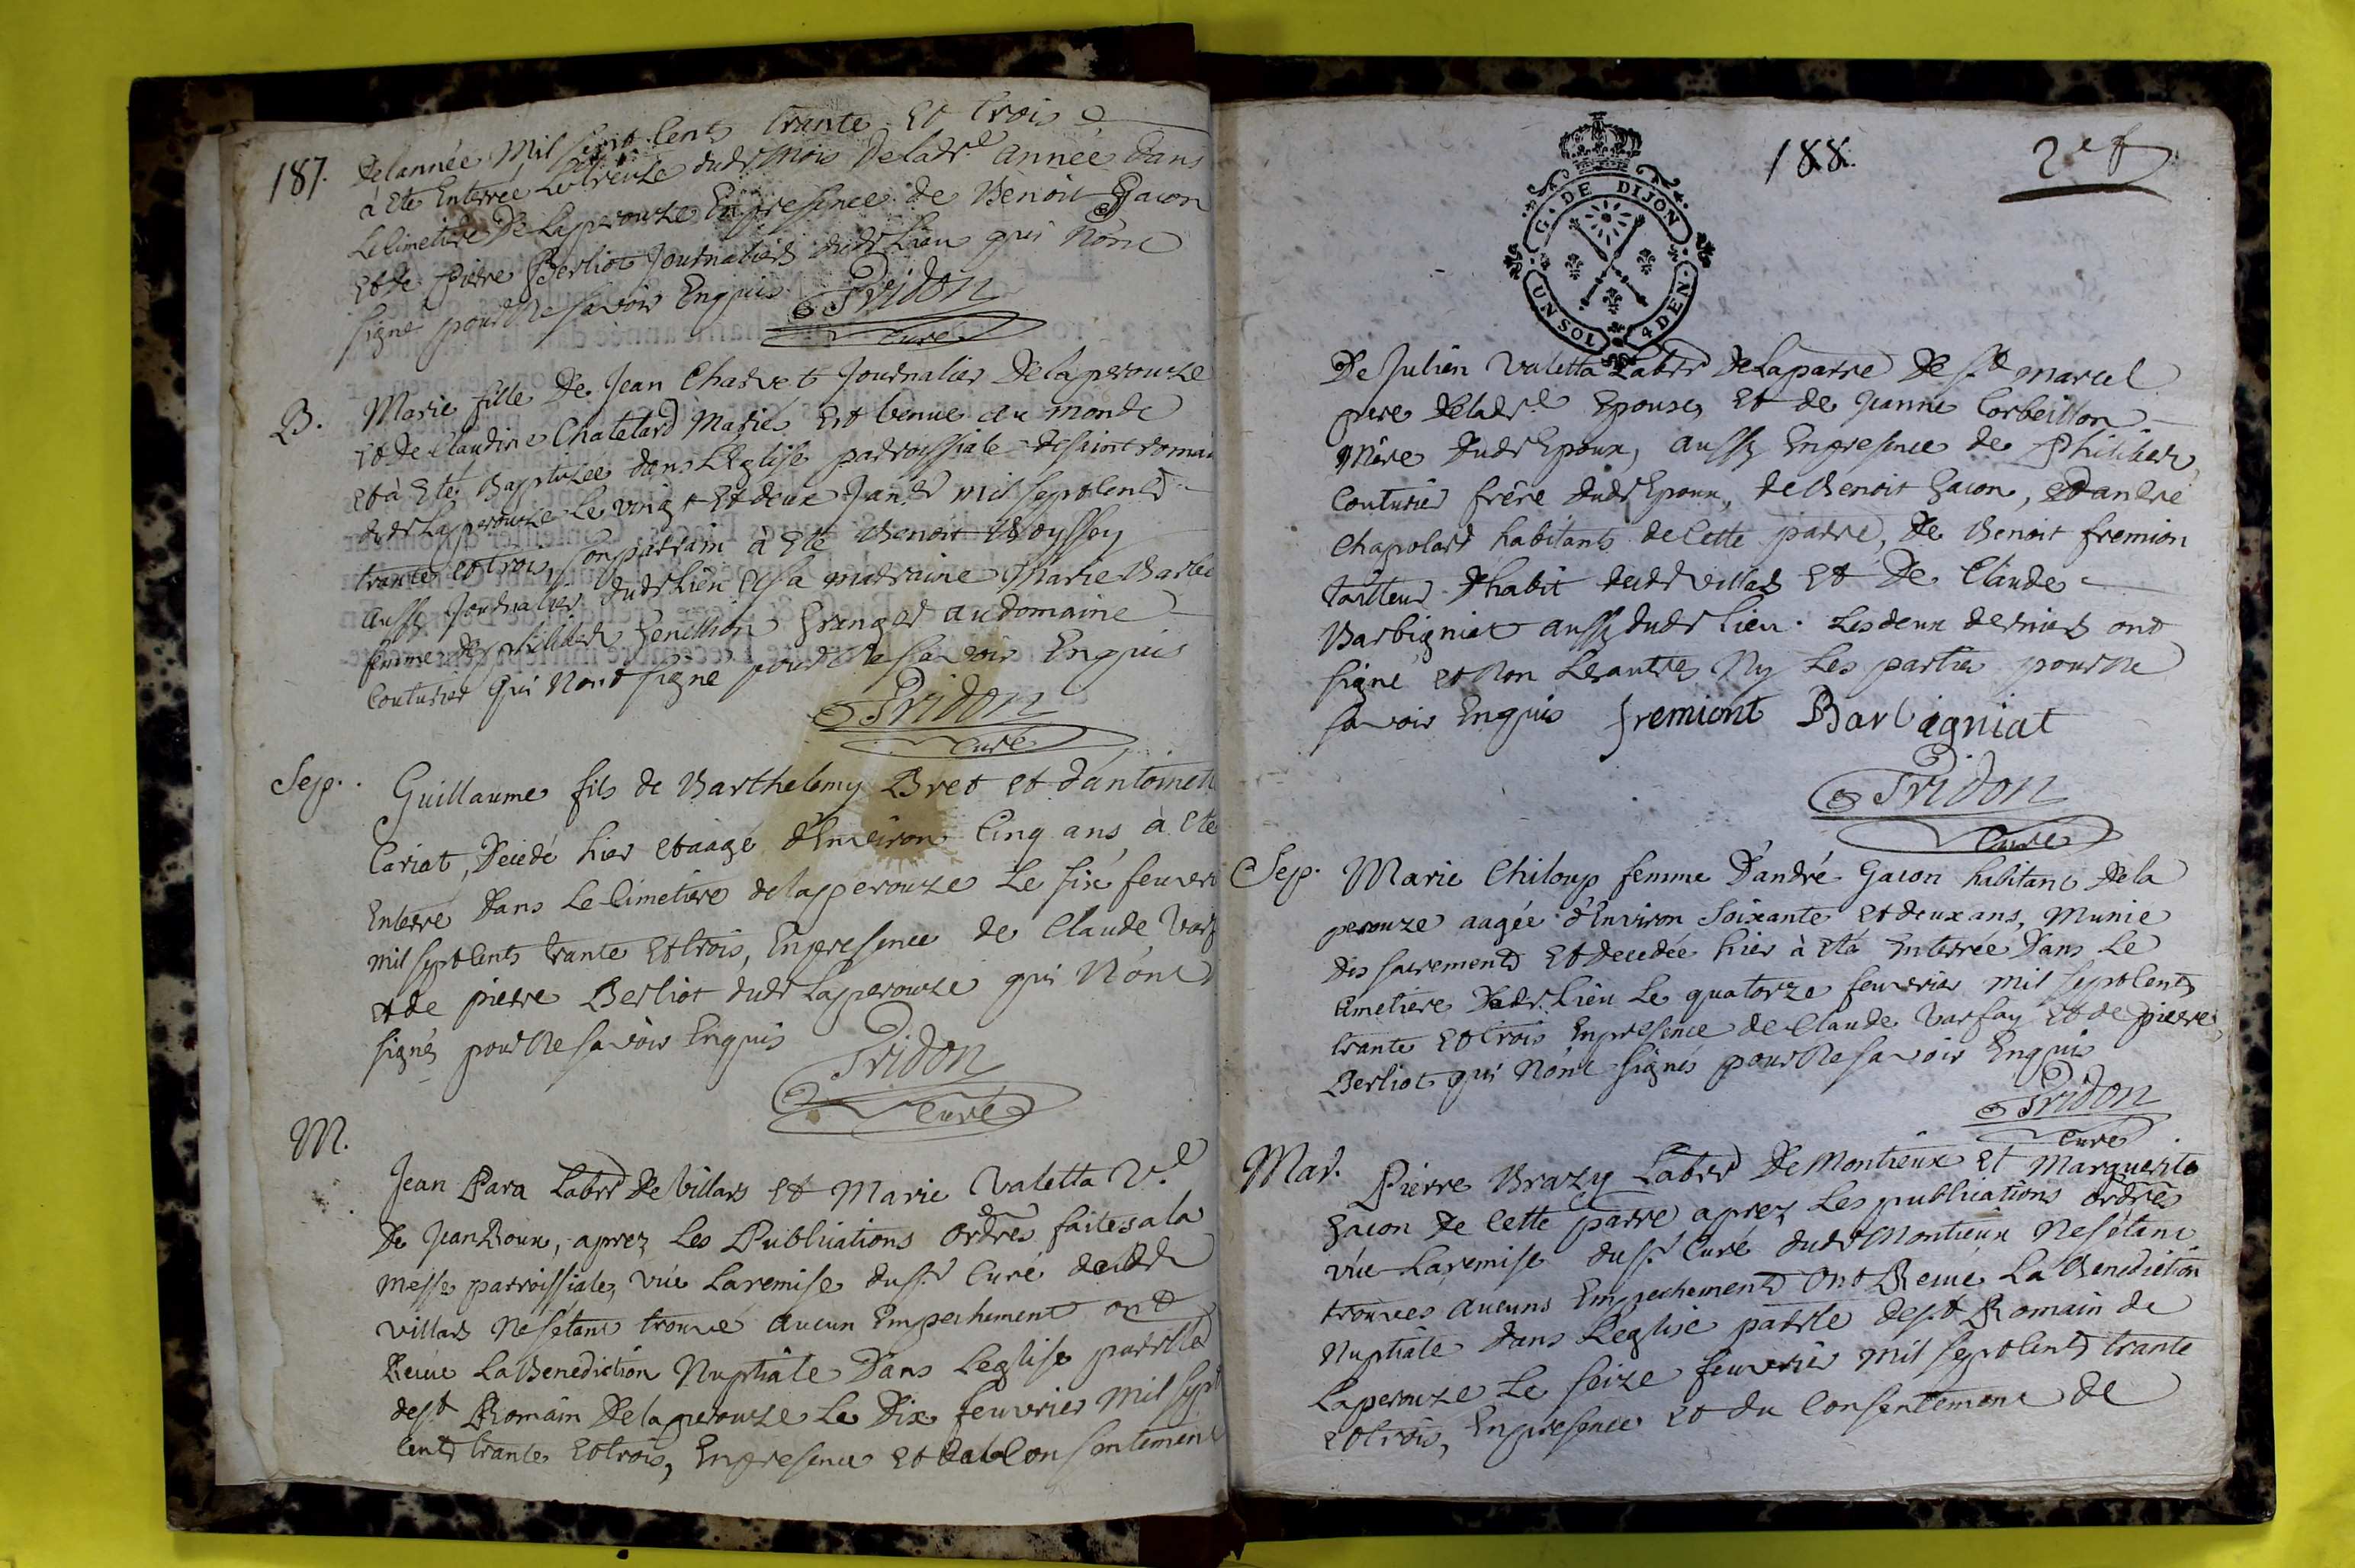 187.
De lannée Mil sept Cents trante Et trois
à Eté Enterrée Le treize dudt mois De ladte année dans
Le Cimetiere De Laperouze En presence de Benoit Gacon
Et de pierre Berliot Journaliers dudt Lieu qui N'ont
signé pour Ne savoir Enquis Tridon
Curé
B. Marie fille De Jean Charvet Journalier De laperouze
Et De Claudine Chatelard Mariés Est Venue au monde
Et à Eté Baptizée dans L'Eglise parroissiale de saint romai
dudt Laperouze Le vingt Et deux Janvr mil sept Cents
trante et trois, son parrain à Eté Benoit Voyssey
aussy Journalier dudt Lieu Et sa marraine Marie Barlet
femme de philibert Genillion Granger au domaine
Couturier Qui N'ont signé pour Ne savoir Enquis
Tridon
Curé
Sep. Guillaume fils de Barthelemy Bret et d'antoinett
Cariat, Decedé hier et aagé d'Environ Cinq ans, à Eté
Enterré Dans Le Cimetiere de lapperouze Le six feuvri
mil sept Cents trante Et trois, En presence de Claude Varf
Et de pierre Berliot dudt Lapperouze qui N'ont
signés pour Ne savoir Enquis Tridon
Curé
M.
Jean Para Labr De Villars Et Marie Valetta Ve
De Jean Roux, aprez Les Publications ordres faites a la
Messe parroissiale, vüe La remise du sr Curé dudt
Villars Ne s'étant trouvé aucun Empechement ont
Reçüe La Benediction Nuptiale Dans L'eglise parrlle
de st Romain De laperouze Le Dix feuvrier mil sept
Cents trante Et trois, En presence Et Consentement
188. 2e f
G. DE DIJON
UN SOL 4 DEN.
De Julien Valetta Labr De Laparre De st marcel
pere de ladte Epouse, Et de Jeanne Corbeillon
Mére dudt Epoux, aussy En presence de Philibert
Couturier frére dudt Epoux, de Benoit Gacon, Et andré
Chapolard habitants de Cette parre, De Benoit fremion
tailleur d'habit dudt Villars Et De Claude
Barbigniat aussy dudt Lieu. Les deux derniers ont
signé et Non Les autres Ny Les parties pour Ne
savoir Enquis fremiont Barbigniat
Tridon
Curé
Sep. Marie Chiloup femme D'andré Gacon habitant De la
perouze aagée d'Environ Soixante Et deux ans, Munie
des sacrements Et decedée hier à Eté Enterrée Dans Le
Cimetiere Dudt Lieu Le quatorze feuvrier Mil sept Cents
trante Et trois En presence de Claude Varfay Et de pierre
Berliot qui N'ont signés pour Ne savoir Enquis
Tridon
Curé
Mar. Pierre Brazy Labr De Montieux Et Marguerite
Gacon De Cette parre aprez Les publications ordres
vüe La remise du sr Curé dudt Montieux Ne s'étant
trouvés aucuns Empechements ont Reçüe La Benediction
Nuptiale Dans L'eglise parrlle de st Romain de
Laperouze Le seize feuvrier mil sept Cents trante
Et trois, En presence Et du Consentement de